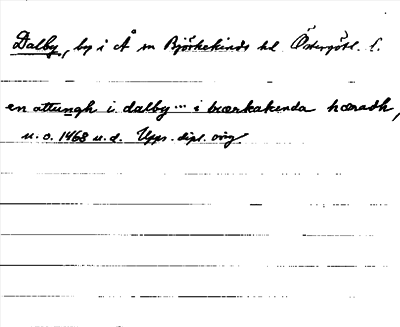 Dalby, by i Å sn Björkekinds hd Östergötl. l.
en attungh i dalby ... i bærkakenda hæradh,
u. o. 1468 u. d. Upps. dipl. orig